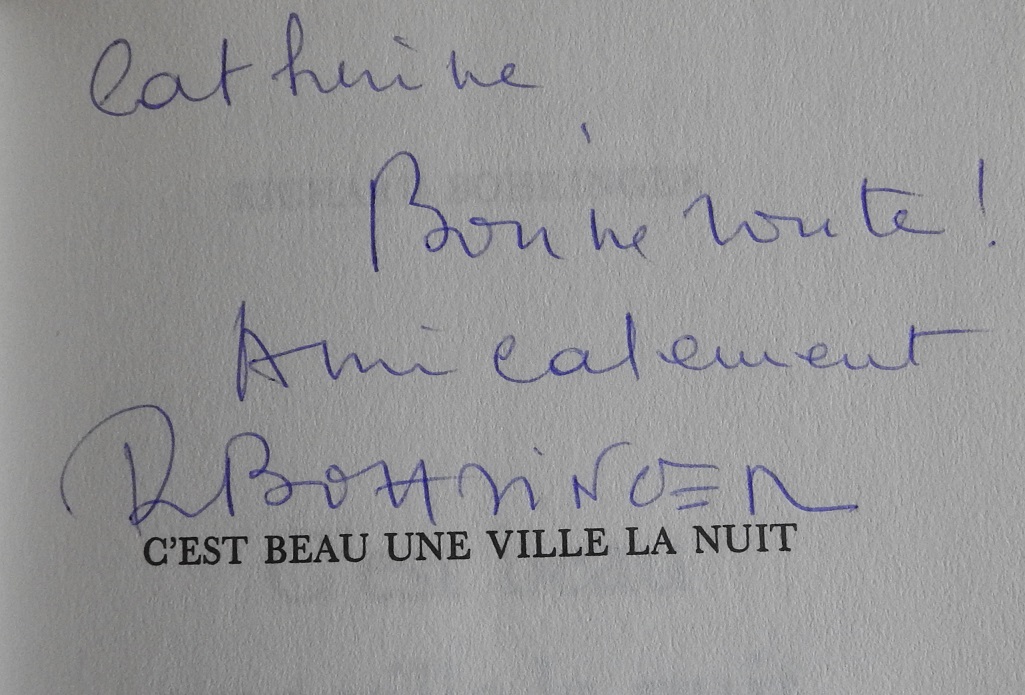 Catherine
Bonne route !
Amicalement
R BOHRINGER
C'EST BEAU UNE VILLE LA NUIT